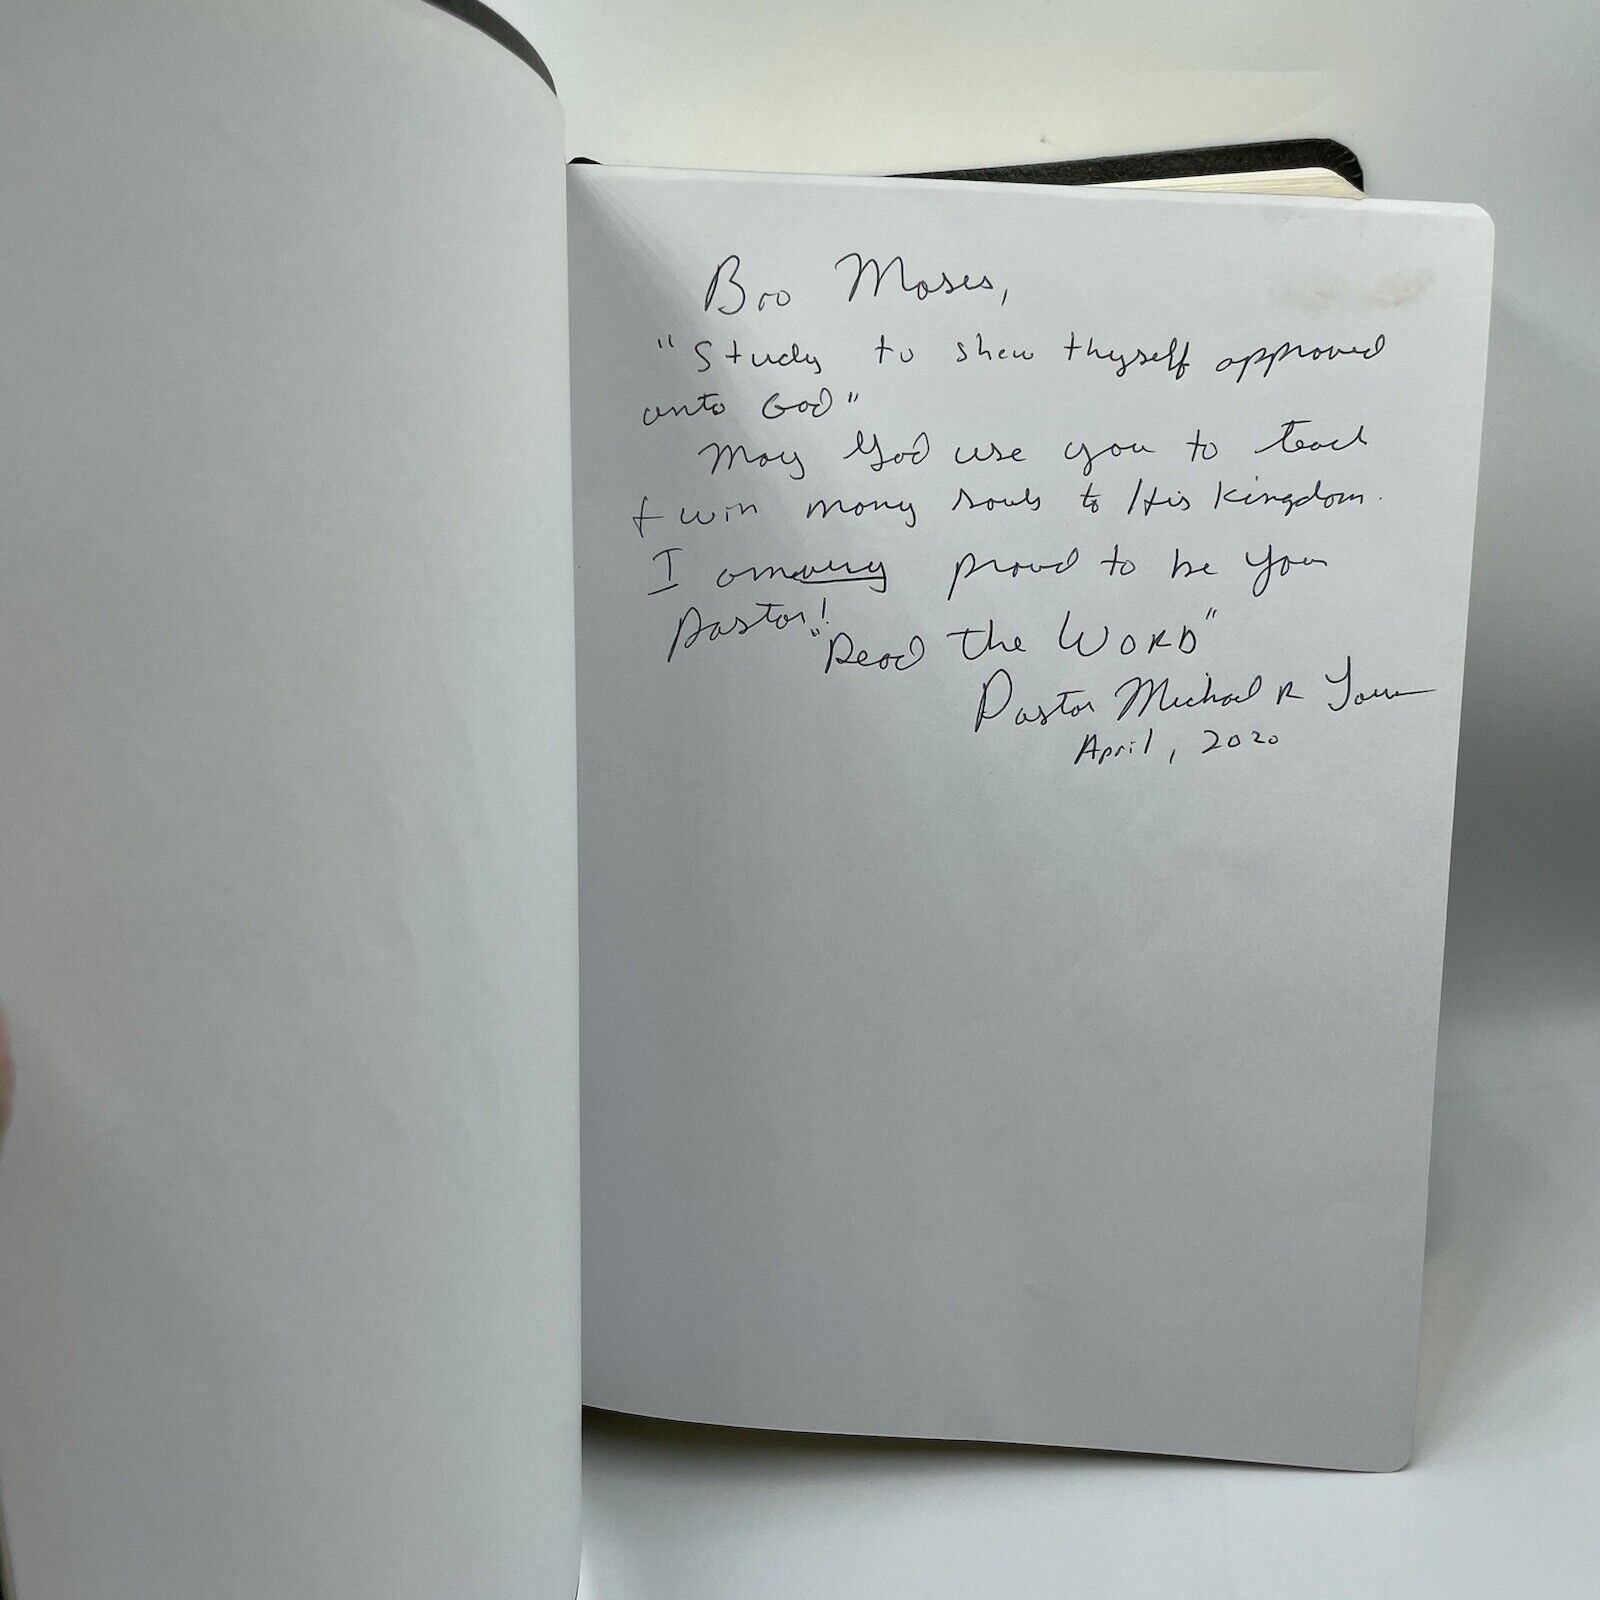 Bro Moses,
"Study to shew thyself approved
unto God"
May God use you to teach
+ win many souls to His Kingdom.
I am very proud to be your
Pastor!
"Read the WORD"
Pastor Michael R
April, 2020